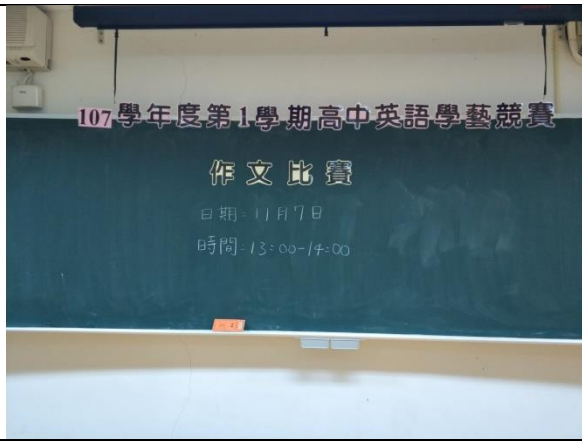 107學年度第1學期高中英語學藝競賽
作文比賽
日期:11月7日
時間:13:00-14:00